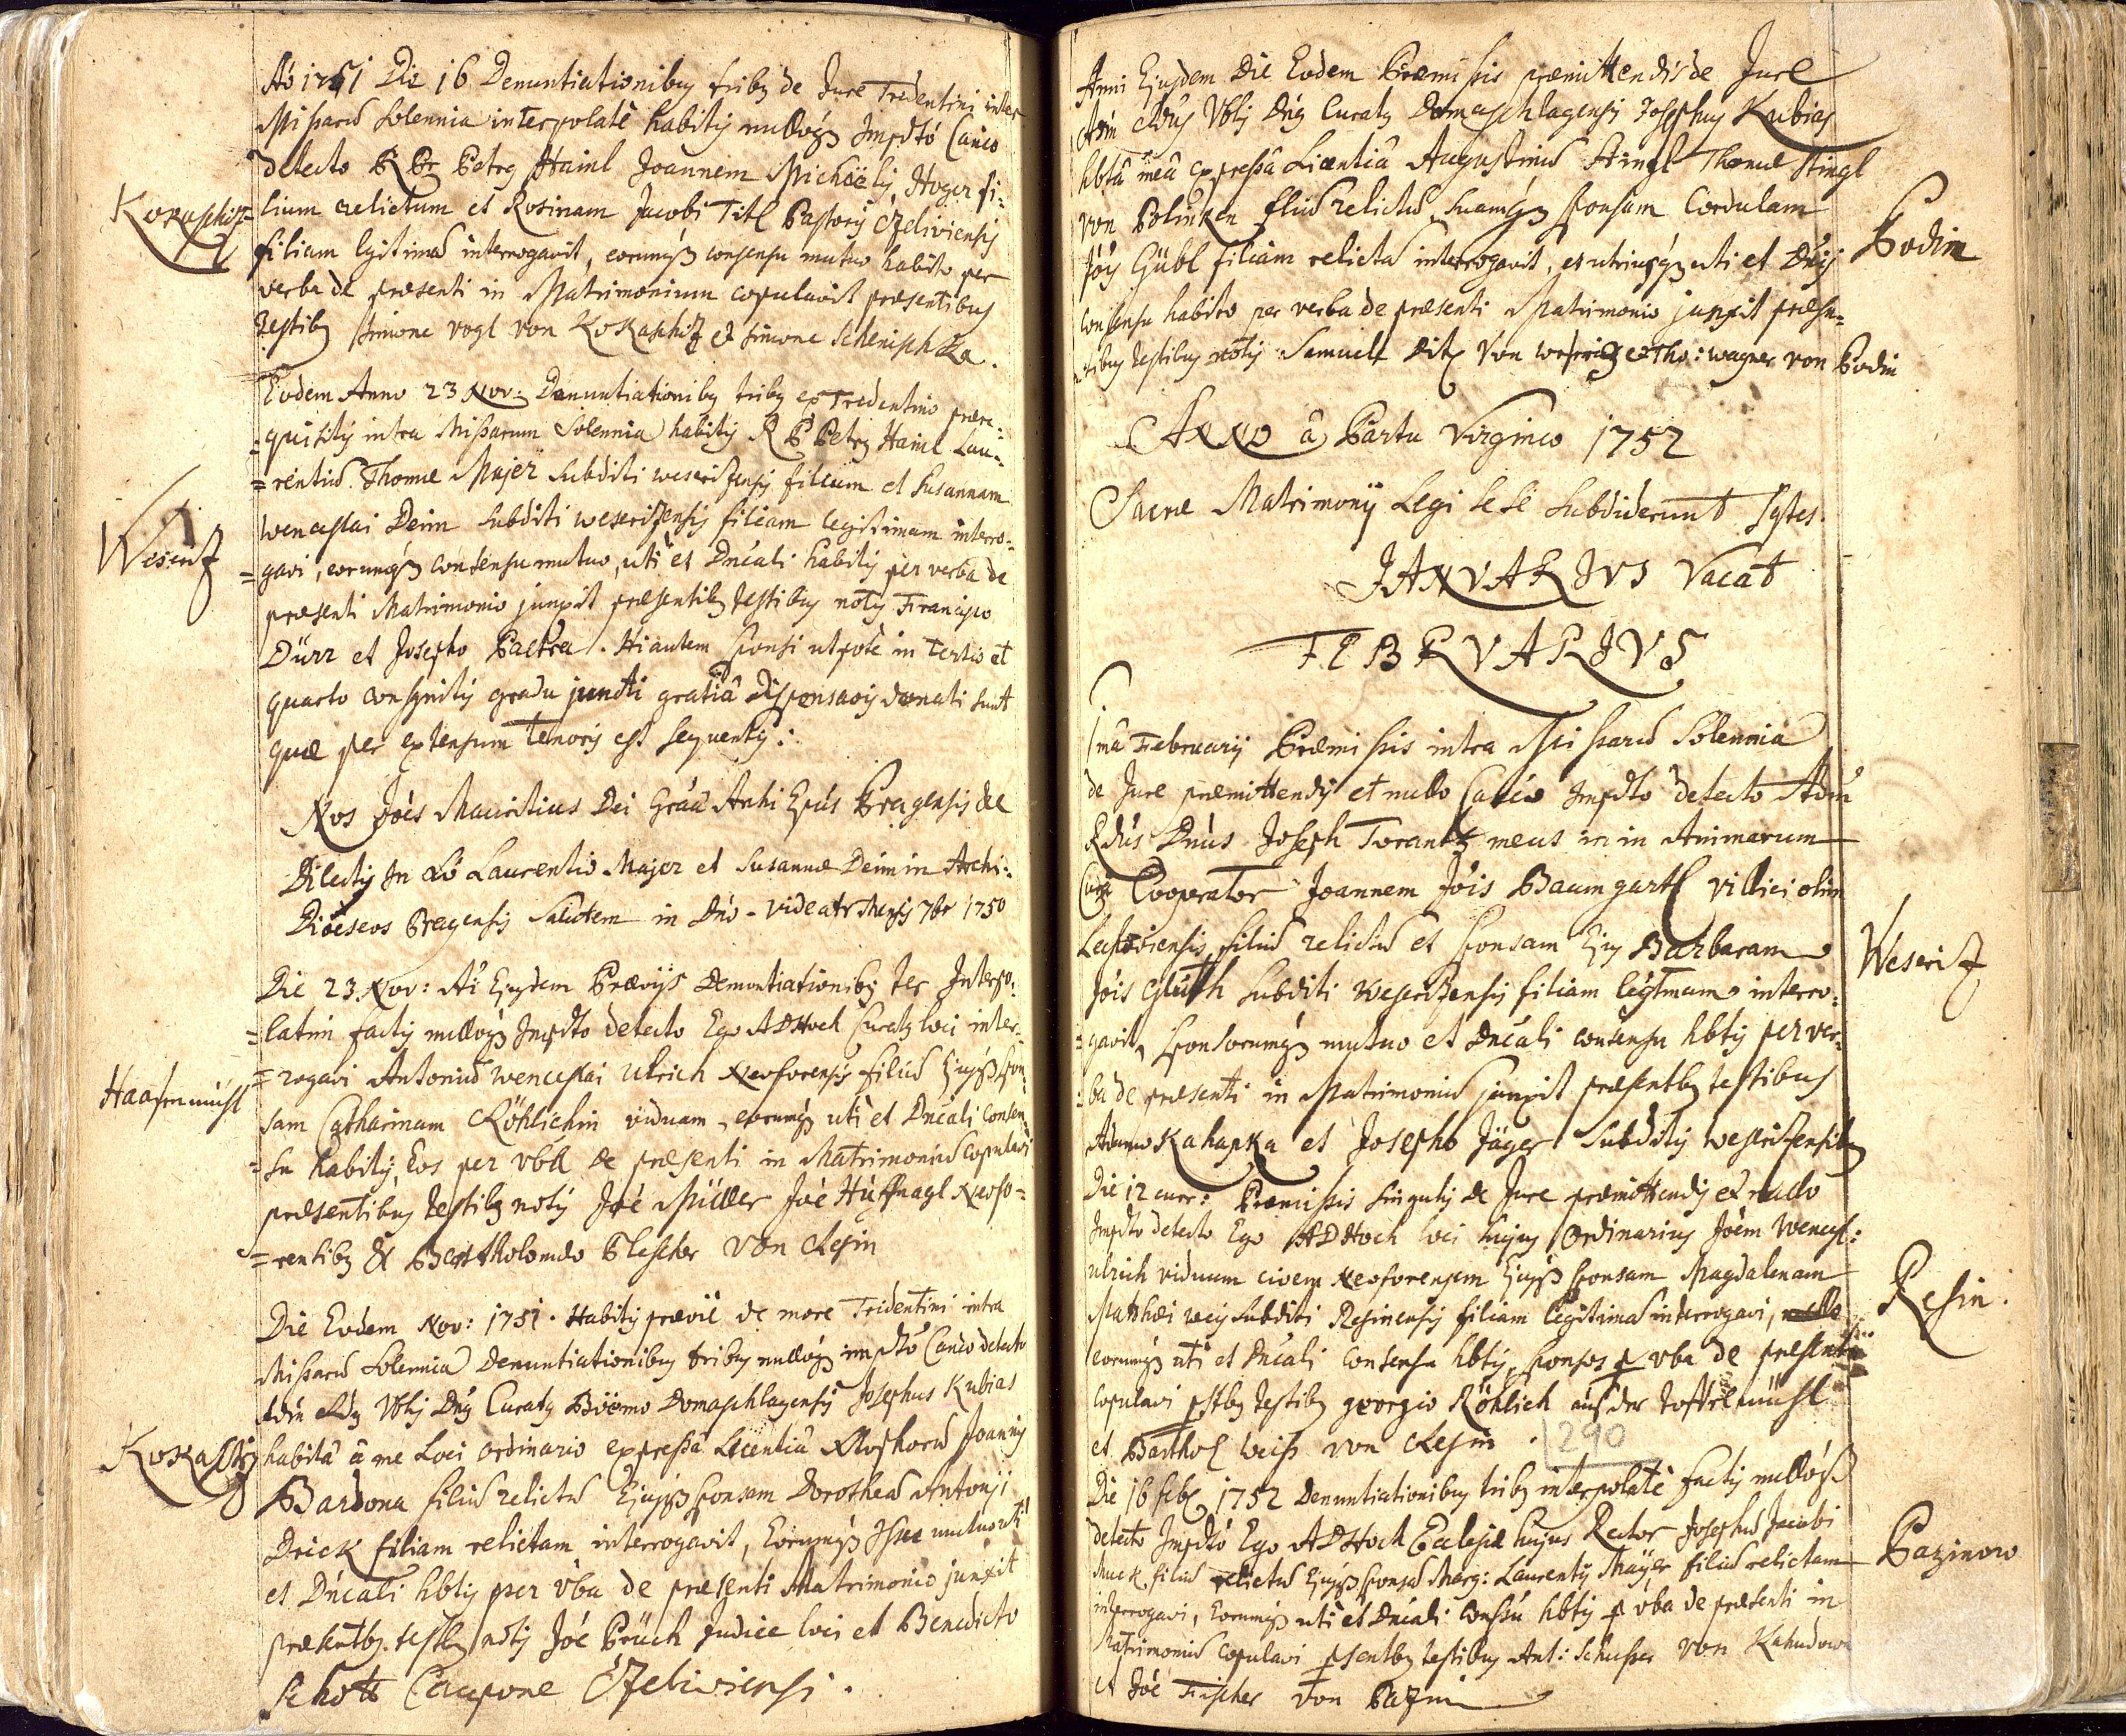 Ao 1751 Die 16 Denuntiationibus tribus de Jure Tredentini inter
Missarum Solennia interpolatè habitis nullóq3 Impdto Canco
detecto R Pr Petrus Haiml Joannem Michaëlis Hoger fi:
Kokaschitz
lium relictum et Rosinam Jacobi Titl Pastoris Czeliviensis
filiam lgitimam interrogavit, eorumq3 consensu mutuo habito per
verba de præsenti in Matrimonium copulavit præsentibus
Testibus Simone Vogl von Kokaschitz et Simone
Eodem Anno 23 Nov: Denuntiationibus tribus ex Tredentino prære:
=quisitis intra Missarum Solennia habitis R P Petrus Haiml Lau=
=rentium Thomæ Majer Subditi weseritzensis filium et Susannam
Weseritz
wenceslai Deim Subditi weseritzensis filiam legitimam interro=
=gavi, eorumq3 consensu mutuo, uti et Dnicali habitis per verba de
præsenti Matrimonio junxit præsentibus testibus notis Francisco
Dürr et Josepho Paetra. Hi autem Sponsi utpote in tertio et
quarto consgnitis gradu juncti gratiâ Dispensaois donati sunt
quæ per extensum tenoris est sequentis:
Nos Joes Mauritius Dei Grãa Archi Epus Pragensis &c
Dilectis In Xo Laurentio Majer et Susannæ Deim in Archi:
Dioeseos Pragensis Salutem in Dno - videatr Mensis 7br 1750
Die 23 Nov: Ai Ejusdem Præviis Denuntiationibus ter Interpo:
=latim factis nullóq3 Impdto detecto Ego AD Hoch Curatus loci inter=
Haasenmühl
=rogavi Antonium wenceslai Ulrich Neoforensis filium Ejusq3 Spon=
sam Catharinam Röhlichin viduam, eorumq3 uti et Dnicali Consen=
=su habitis, Eos per vba de præsenti in Matrimonium Copulavi
præsentibus testibus notis Joe Müller Joe Huffnagl Neofo=
=rensibus & Bartholomæo Plescher von Resin
Die Eodem Nov: 1751. Habitis prævie de more Tridentini intra
Missarum Solennia Denuntiationibus tribus nullóq3 impdto Canco detecto
Adm Rdus Vblis Dnus Curatus Boëmo Domaschlagensis Josephus Kubias
Kokaschitz
habitâ â me Loci ordinario expressâ Licentiâ Xstophorum Joannis
Bardona filium relictum Ejusq3 Sponsam Dorotheam Antonii
Drick filiam relictam interrogavit, Eorumq3 mutuo uti
et Dnicali hbtis per vba de præsenti Matrimonio junxit
præsentbus testbus notis Joe Prüch Judice loci et Benedicto
Schott Caupone Czeliviensi.
Anni Ejusdem Die Eodem Præmissis præmittendis de Jure
Adm Rdus Vblis Dnus Curatus Domaschlagensis Josephus Kubias
hbtâ meâ expressâ Licentiâ Augustinum Stingl Thomæ Stingl
von Polinken flium relictum, Suamq3 Sponsam Cordulam
Podim
Jois Gübl filiam relictam interrogavit, et utriusq3 uti et Dnis
consensu habito per verba de præsenti Matrimonio junxit præsen=
=tibus testibus notis Samuele Ditz von weseritz et Tho: wagner von Podin
ANNO â Partu Virgineo 1752
Sacræ Matrimonij Legi Se Se Subdiderunt Sqtes.
JANVARJVS Vacat
FEBRVARJVS
1mâ Februarij Præmissis intra Missarum Solennia
de Jure præmittendis et nullo Canco Impdto detecto Adm
Rdus Dnus Joseph Torantz meus in in Animarum
Cura Cooperator Joannem Jois Baumgartl villici olim
filium relictum et Sponsam Ejus Barbaram
Weseritz
Jois Gluth Subditi Weseritzensis filiam legtmam interro:
=gavit, Sponsorumq3 mutuo et Dnicali consensu hbtis per ver:
:ba de præsenti in Matrimonium junxit præsentbus testibus
Adamo Kahapka et Josepho Jäger Subditis weseritzensibus
Die 12 curr: Præmissis Singulis de Jure præmittendis et nullo
Impdto detecto Ego AD Hoch loci hujus Ordinarius Joem Wencesl:
Ulrich viduum civem Neoforensem Ejusq3 Sponsam Magdalenam
Resin.
Matthæi weis Subditi Resinensis filiam legitimam interrogavi,
eorumq3 uti et Dnicali Consensu hbtis, Sponsos p vba de præsenti
copulavi pstbus testibus georgio Röhlich aus der Toffelmühl
et Barthol weiss von Resin. 290
Die 16 feb 1752 Denuntiationibus tribus interpolatè factis nullóq3
detecto Impdto Ego AD Hoch Ecclesiæ hujus Rector Josephum Jacobi
Pazinow
Muck filium relictum Ejusq3 Sponsam Marg: Laurentij Mayer filiam relictam
interrogavi, Eorumq3 uti et Dnicali Conssu hbtis p vba de præsenti in
Matrimonium copulavi psentbus testibus Ant: Schusser von Kahudowa
et Joe Fischer von Pazin